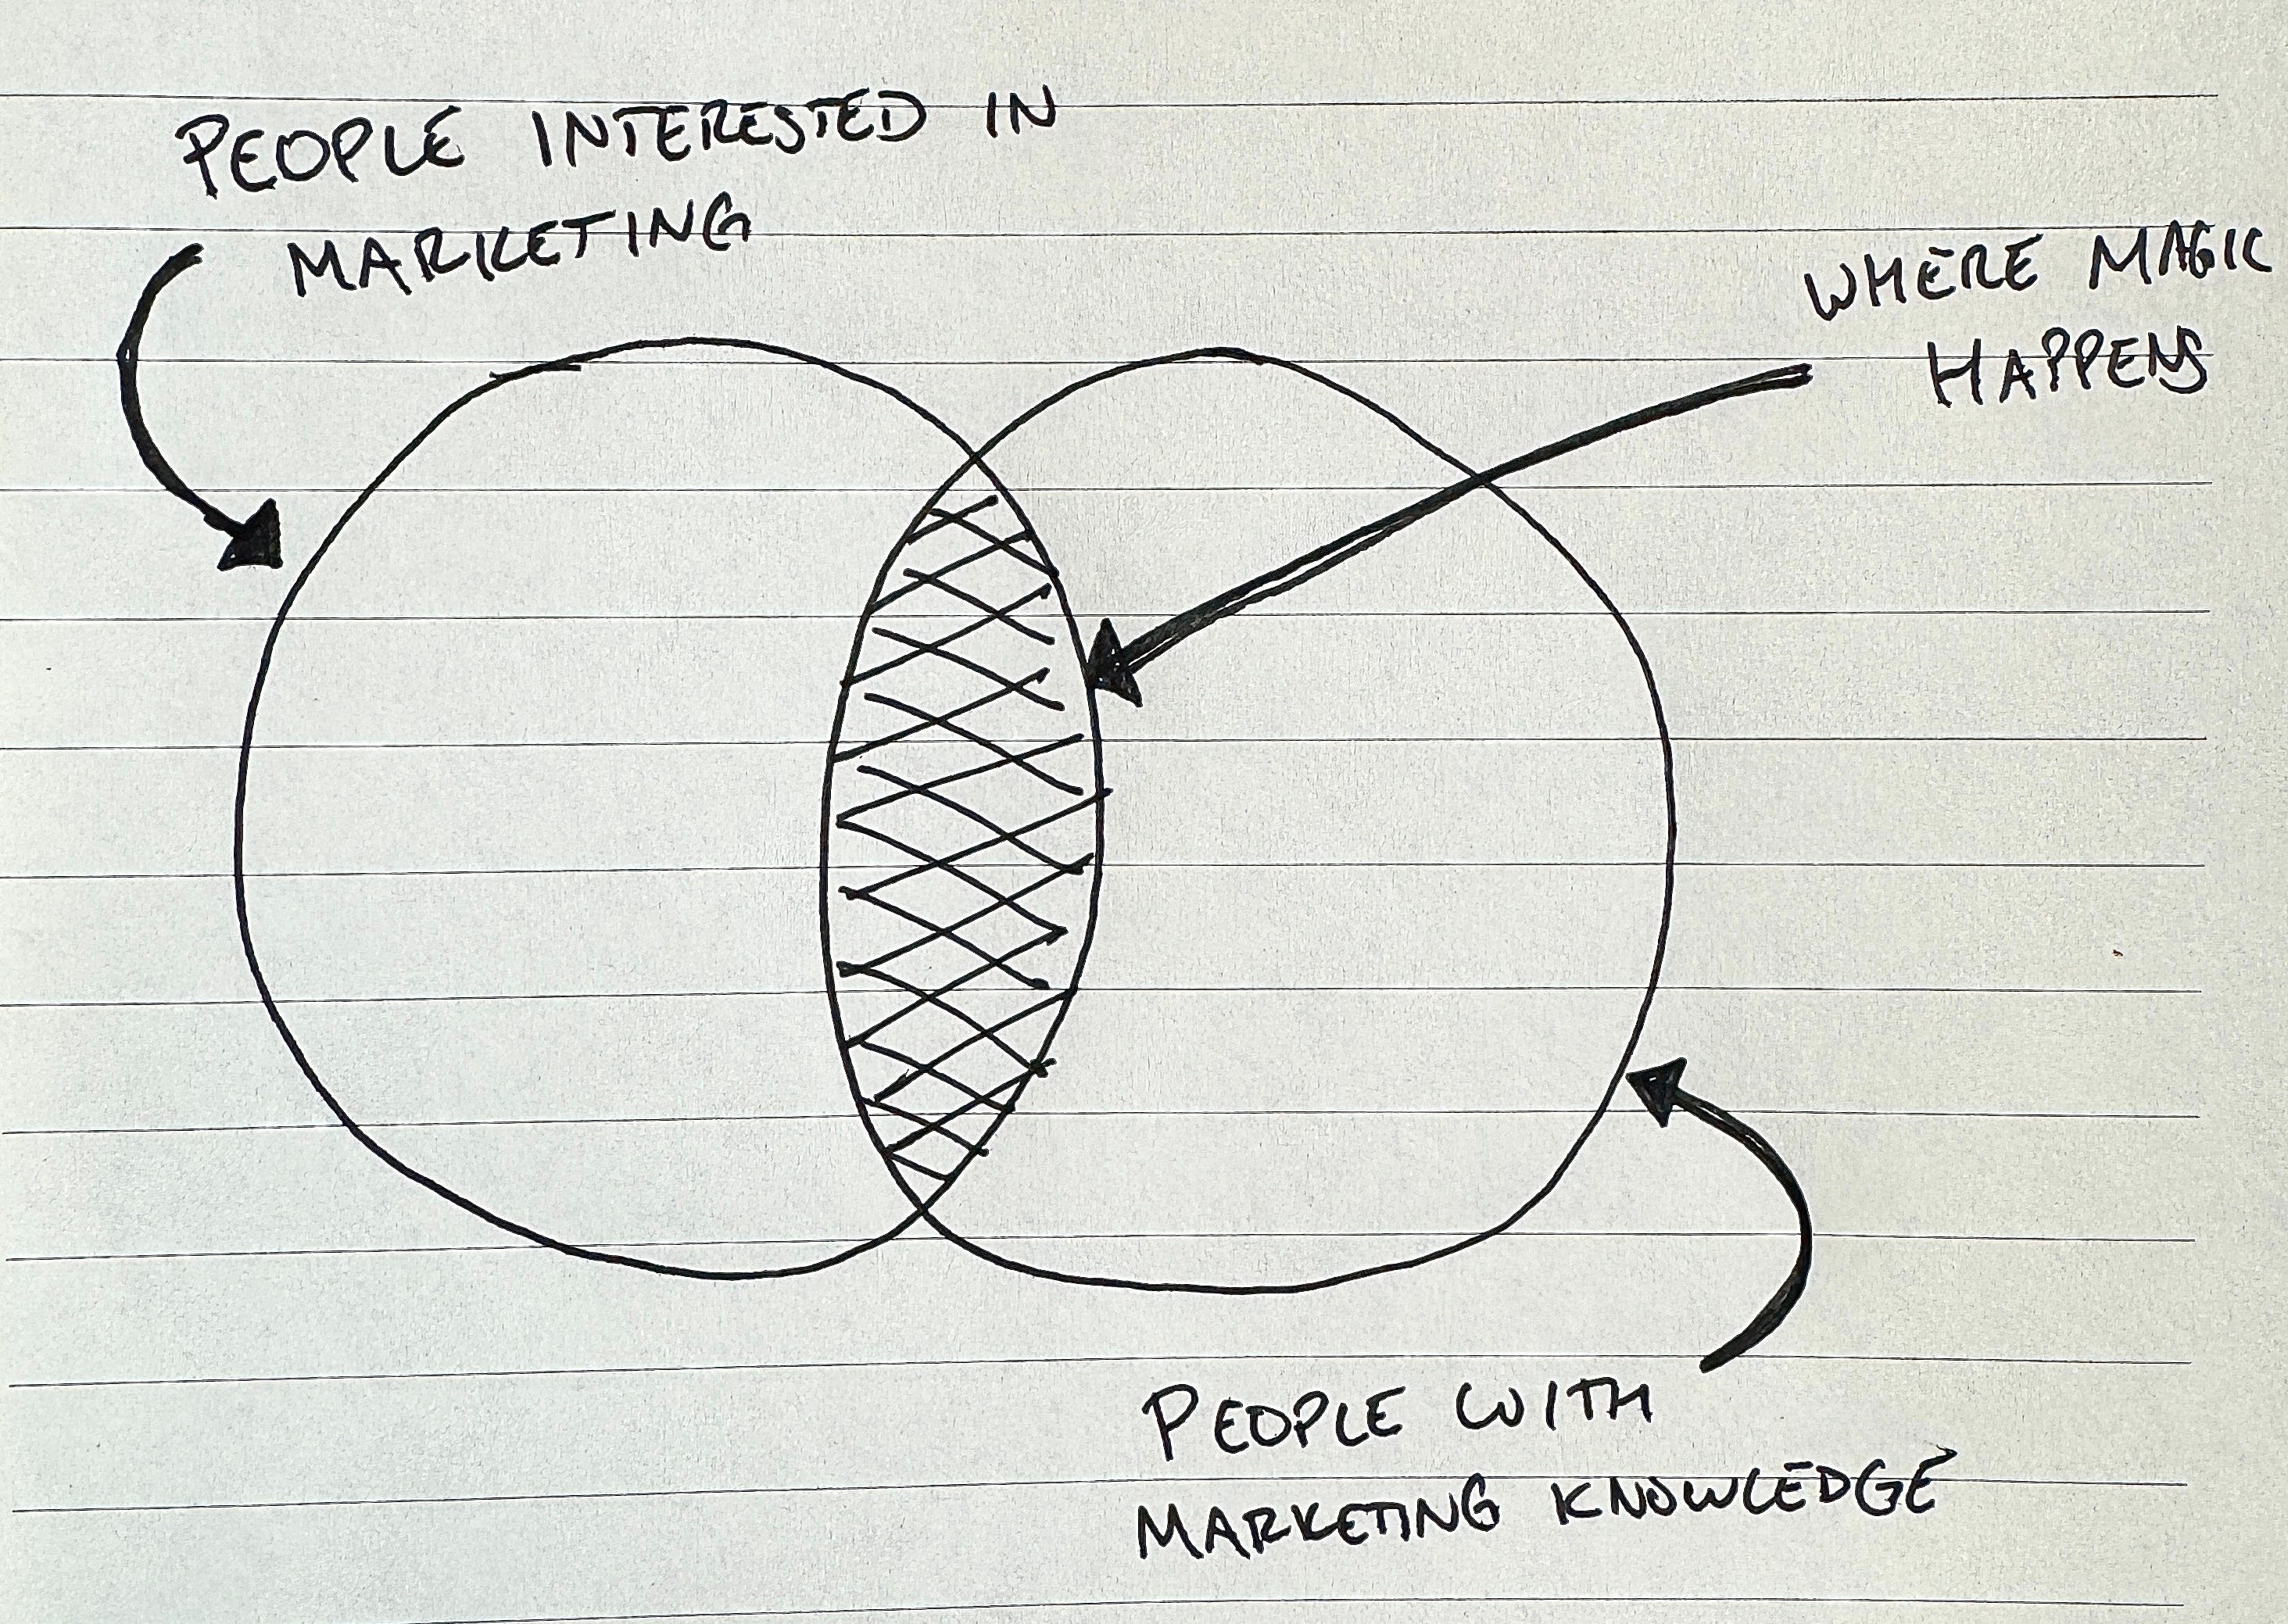 PEOPLE INTERESTED IN
MARKETING
WHERE MAGIC
HAPPENS
PEOPLE WITH
MARKETING KNOWLEDGE